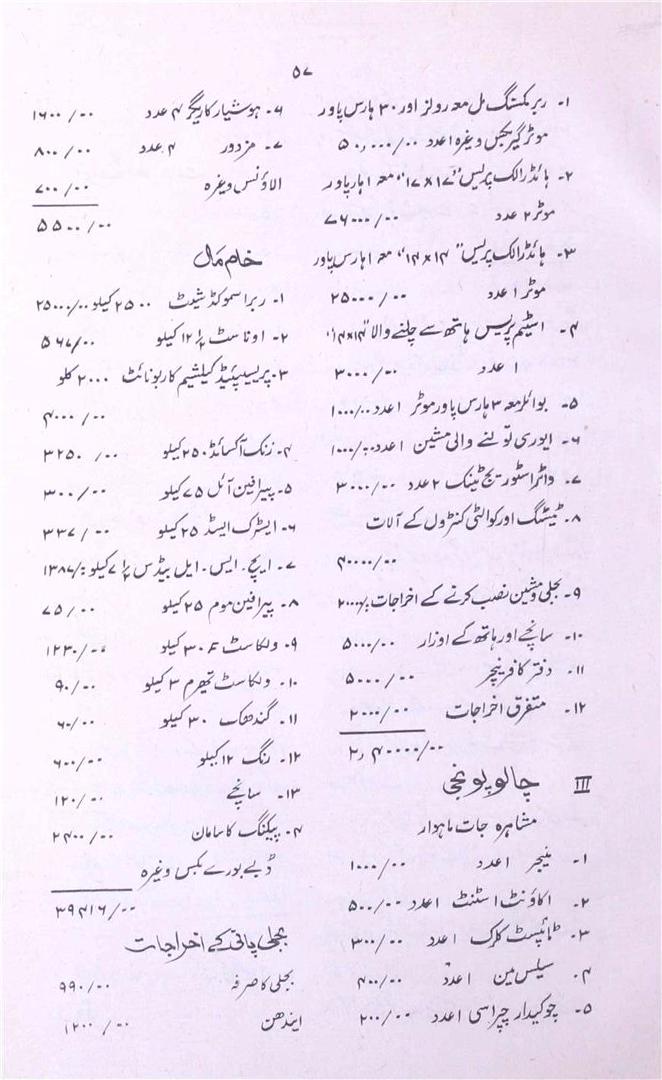 ۵۷
۱۔ ربر مکسنگ مل معہ رولز اور ۳۰ ہارس پاور
موٹر گیر بکس وغیرہ ۱ عدد ۵۰،۰۰۰/۰۰
۲۔ ہائڈرالک پریس "۱۷×۱۷" معہ ۱ ہارس پاور
موٹر ۲ عدد ۷۶۰۰۰/۰۰
۳۔ ہائڈرالک پریس "۱۴×۱۴" معہ ۱ ہارس پاور
موٹر ۱ عدد ۲۵۰۰۰/۰۰
۴۔ اسٹیم پریس ہاتھ سے چلنے والا "۱۴×۱۴"
۱ عدد ۳۰۰۰/۰۰
۵۔ بوائلر معہ ۳ ہارس پاور موٹر ۱ عدد ۱۰۰۰/۰۰
۶۔ ایوری تولنے والی مشین ۱ عدد ۱۰۰۰/۰۰
۷۔ واٹر اسٹوریج ٹینک ۲ عدد ۳۰۰۰/۰۰
۸۔ ٹیسٹنگ اور کوالٹی کنٹرول کے آلات
۴۰۰۰۰/۰۰
۹۔ بجلی و مشین نصب کرنے کے اخراجات ۲۰۰۰۰/۰۰
۱۰۔ سانچے اور ہاتھ کے اوزار ۵۰۰۰/۰۰
۱۱۔ دفتر کا فرنیچر ۵۰۰۰/۰۰
۱۲۔ متفرق اخراجات ۲۰۰۰/۰۰
۲،۴۰۰۰۰/۰۰
III چالو پونجی
مشاہرہ جات ماہوار
۱۔ منیجر ۱ عدد ۱۰۰۰/۰۰
۲۔ اکاؤنٹ اسٹنٹ ۱ عدد ۵۰۰/۰۰
۳۔ ٹائپسٹ کلرک ۱ عدد ۳۰۰/۰۰
۴۔ سیلس مین ۱ عدد ۴۰۰/۰۰
۵۔ چوکیدار چپراسی ۱ عدد ۲۰۰/۰۰
۶۔ ہوشیار کاریگر ۴ عدد ۱۶۰۰/۰۰
۷۔ مزدور ۴ عدد ۸۰۰/۰۰
الاؤنس وغیرہ ۷۰۰/۰۰
۵۵۰۰/۰۰
خام مال
۱۔ ربر اسموکڈ شیٹ ۲۵۰۰ کیلو ۲۵۰۰۰/۰۰
۲۔ اوناسٹ ۱۲ ۱/۲ کیلو ۵۶۷/۰۰
۳۔ پریسیپیٹیڈ کیلشیم کاربونائٹ ۲۰۰۰ کلو
۴۰۰۰/۰۰
۴۔ زنک آکسائڈ ۲۵۰ کیلو ۳۲۵۰/۰۰
۵۔ پیرافین آئل ۷۵ کیلو ۳۰۰/۰۰
۶۔ ایٹرک ایسڈ ۲۵ کیلو ۳۳۷/۰۰
۷۔ ایچ۔ ایس۔ ایل بیڈس ۷ ۱/۲ کیلو ۱۳۸۷/۰۰
۸۔ پیرافین موم ۲۵ کیلو ۷۵/۰۰
۹۔ ولکاسٹ F ۳۰ کیلو ۱۲۳۰/۰۰
۱۰۔ ولکاسٹ تھرم ۳ کیلو ۹۰/۰۰
۱۱۔ گندھک ۳۰ کیلو ۶۰/۰۰
۱۲۔ رنگ ۱۲ کیلو ۶۰۰/۰۰
۱۳۔ سانچے ۱۲۰/۰۰
۴۔ پیکنگ کا سامان ۲۴۰۰/۰۰
ڈبے بورے بکس وغیرہ
۳۹۴۱۶/۰۰
بجلی پانی کے اخراجات
بجلی کا صرفہ ۹۹۰/۰۰
ایندھن ۱۲۰۰/۰۰